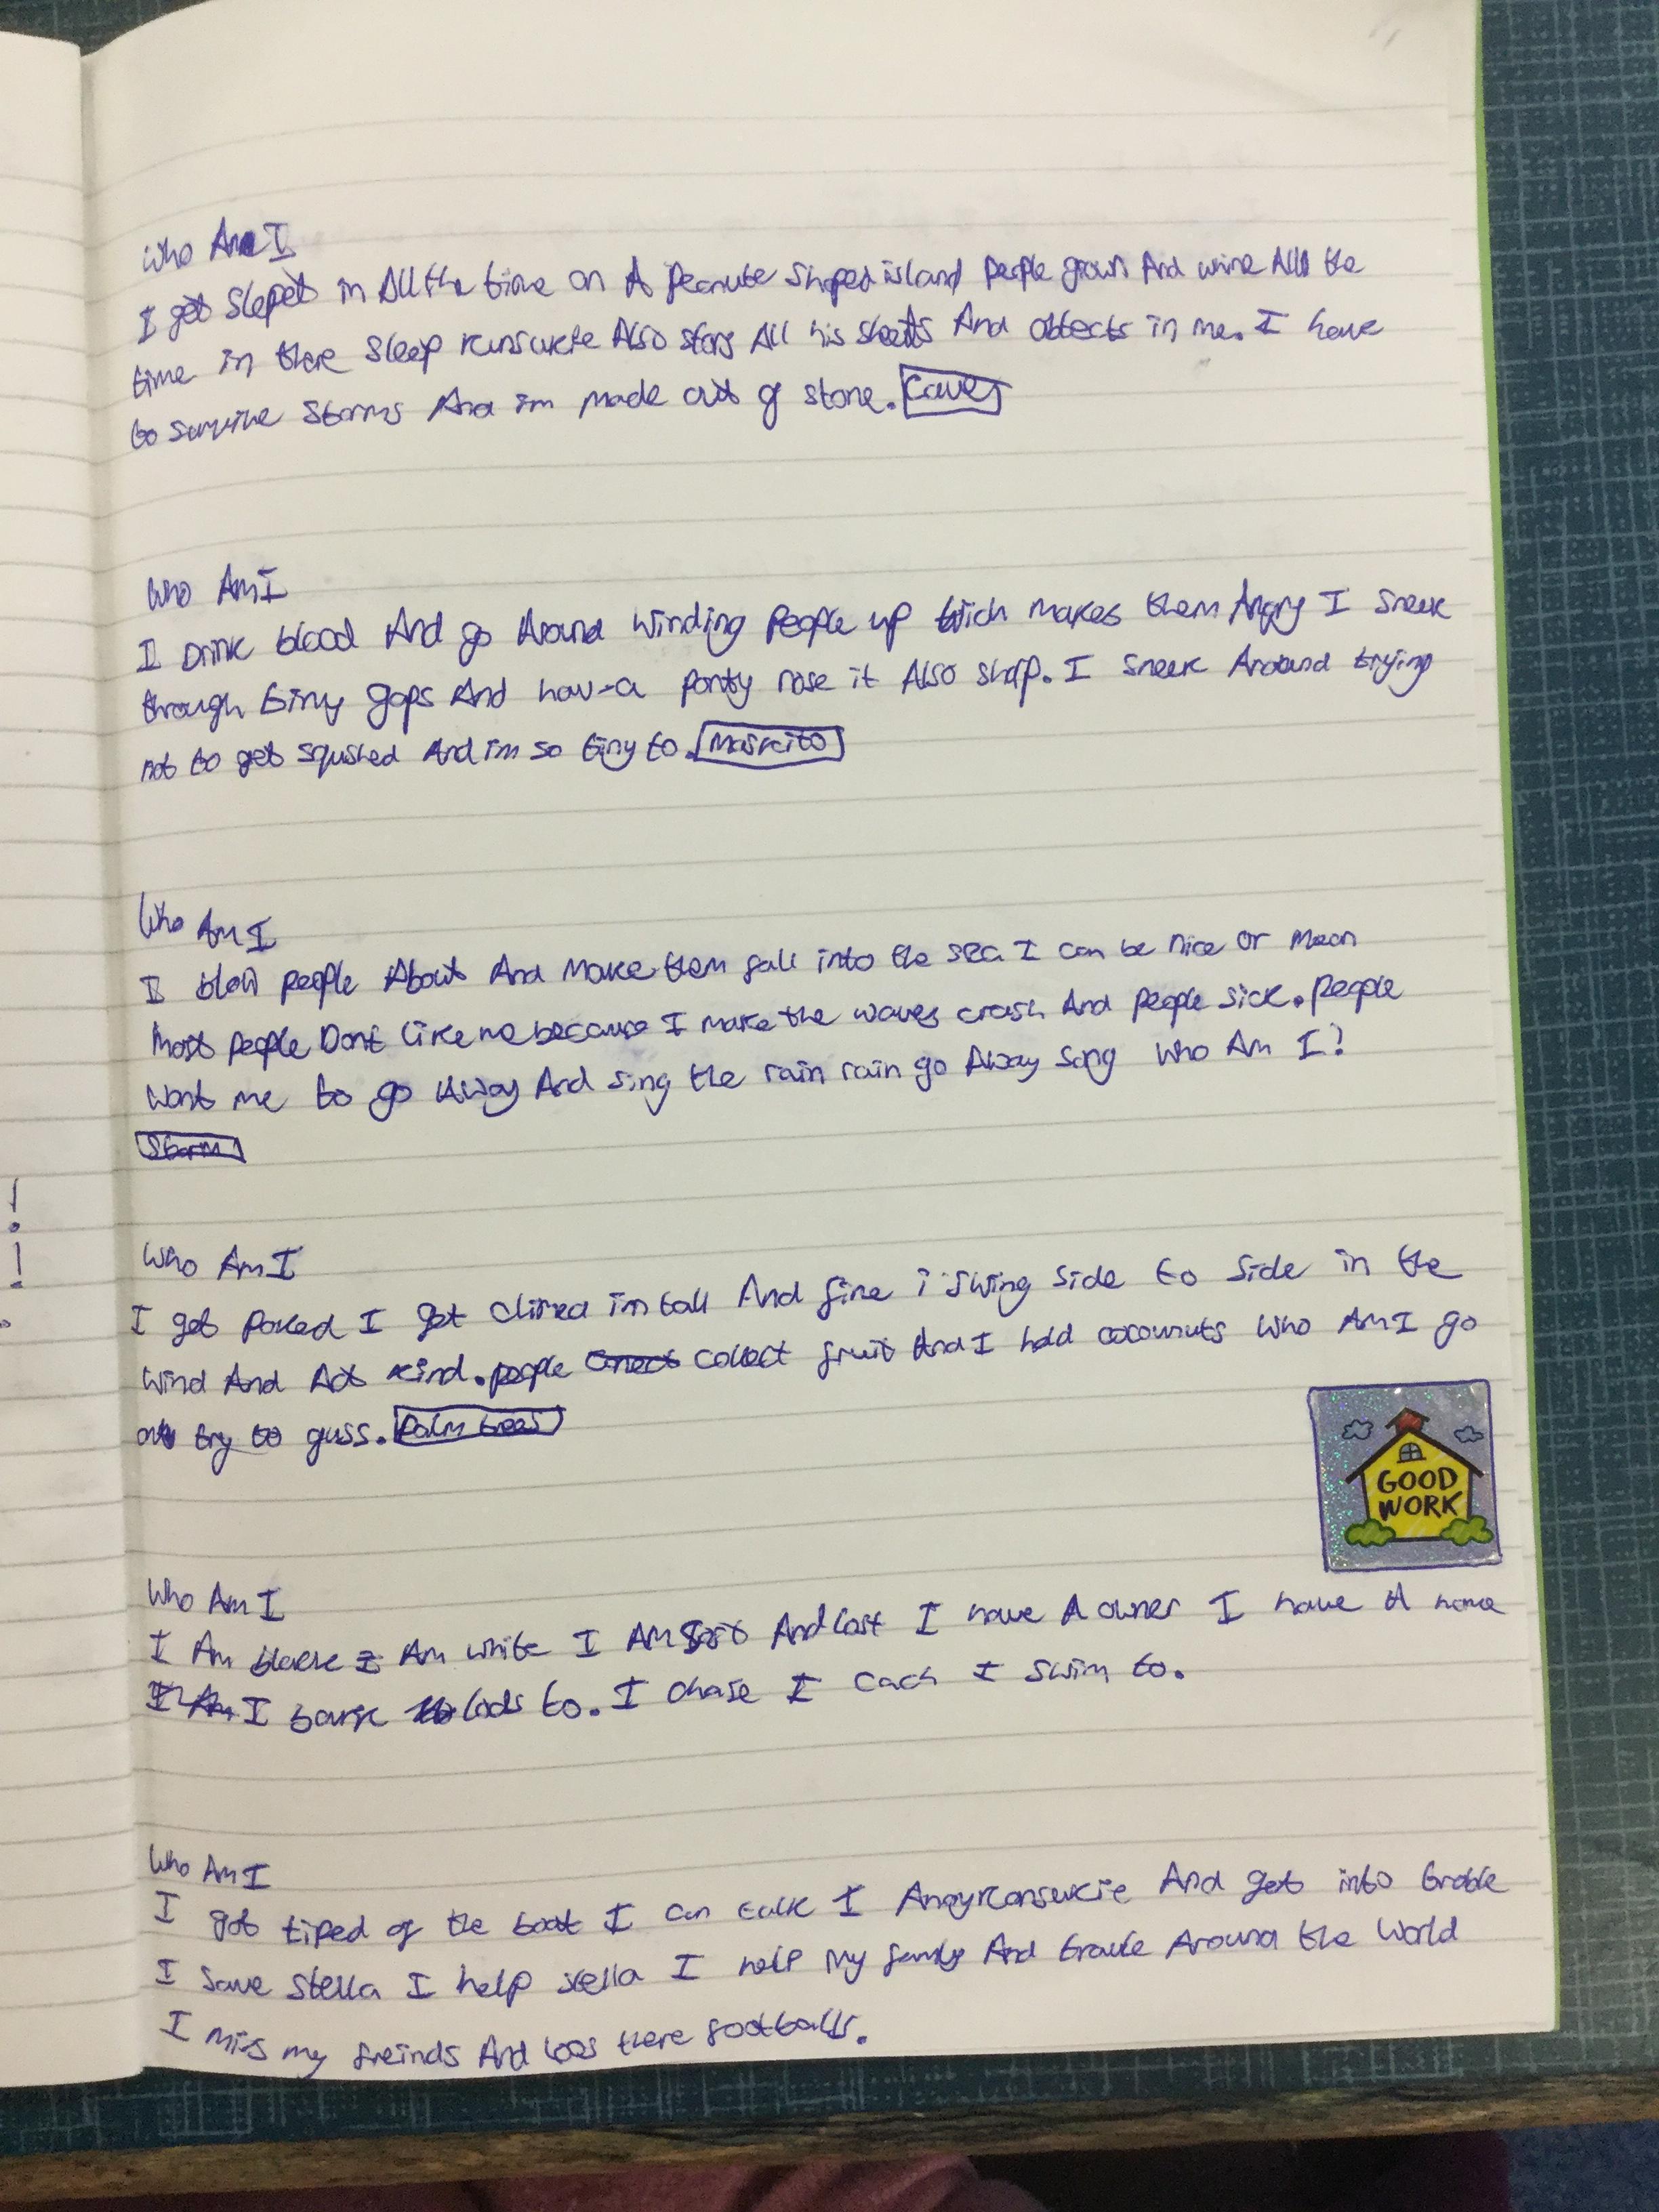 Who Am I
I get slepet in All the time on A Peanute shaped island People grown And wine All the
time in there sleep Kunsukte Also stors All his sheets And obtects in me. I have
to survive storms And im made out of stone. Caves
Who Am I
I Drink blood And go Around Winding People up Wich makes them Angry I sneek
through tiny gaps And hav-a ponty nose it Also sharp. I sneek Around trying
not to get squshed And im so tiny to. Mosrcito
Who Am I
I blow people About And Make them fall into the sea I can be nice or Mean
Most people Dont like me because I make the waves crash And People sick. People
Want me to go Away And sing the rain rain go Away song Who Am I?
Storm
Who Am I
I get Poked I get climed im tall And fine i swing side to side in the
Wind And Act kind. people collect fruit And I hold coconuts Who Am I go
on try to guss. Palm trees
GOOD
WORK
Who Am I
I Am black I Am white I Am And lost I have A owner I have A home
I bark lods to. I chase I cach I swim to.
Who Am I
I got tiped of the boat I can talk I Angry Kensukie And get into troble
I save Stella I help stella I help My family And travle Around the World
I miss my freinds And loos there footballs.